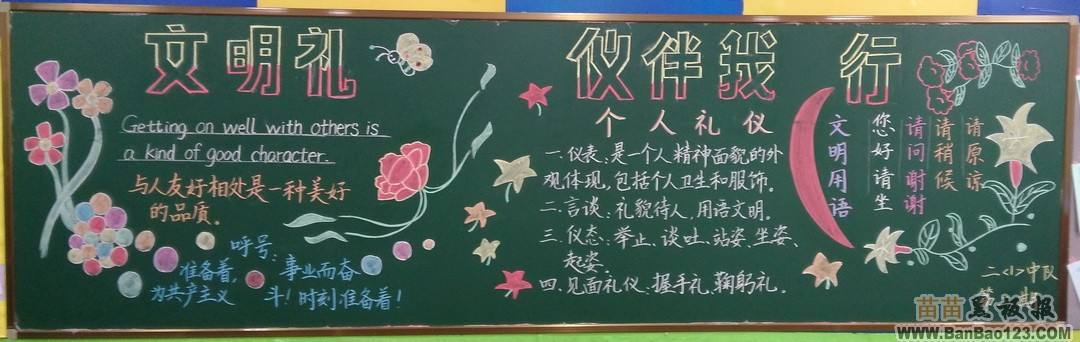 文明礼仪伴我行
Getting on well with others is
a kind of good character.
与人友好相处是一种美好
的品质。
呼号:
准备着,
为共产主义
事业而奋
斗!时刻准备着!
个人礼仪
一.仪表:是一个人精神面貌的外
观体现,包括个人卫生和服饰。
二.言谈:礼貌待人,用语文明。
三.仪态:举止、谈吐、站姿、坐姿、
起姿.
四.见面礼仪:握手礼、鞠躬礼.
文明用语
您好请坐
请问谢谢
请稍候
请原谅
二<1>中队
第 期
苗苗黑板报
www.BanBao123.com